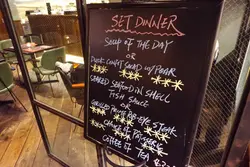 SET DINNER
SOUP OF THE DAY
OR
DUCK CONFIT SALAD w/ PEAR
***
BAKED SEAFOOD IN SHELL
FISH SAUCE
OR
GRILLED PRIME RIB-EYE STEAK
***
OF
COFFEE OR TEA